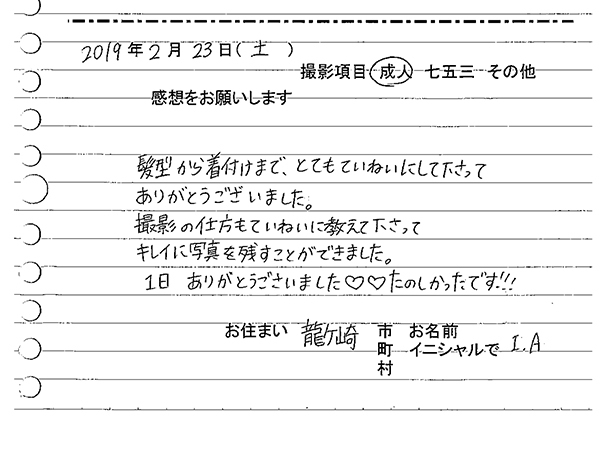 2019年2月23日(土)
撮影項目 成人 七五三 その他
感想をお願いします
髪型から着付けまで、とてもていねいにして下さって
ありがとうございました。
撮影の仕方もていねいに教えて下さって
キレイに写真を残すことができました。
1日 ありがとうございました♡♡たのしかったです!!!
お住まい 龍ケ崎 市 お名前
町 イニシャルで I.A
村